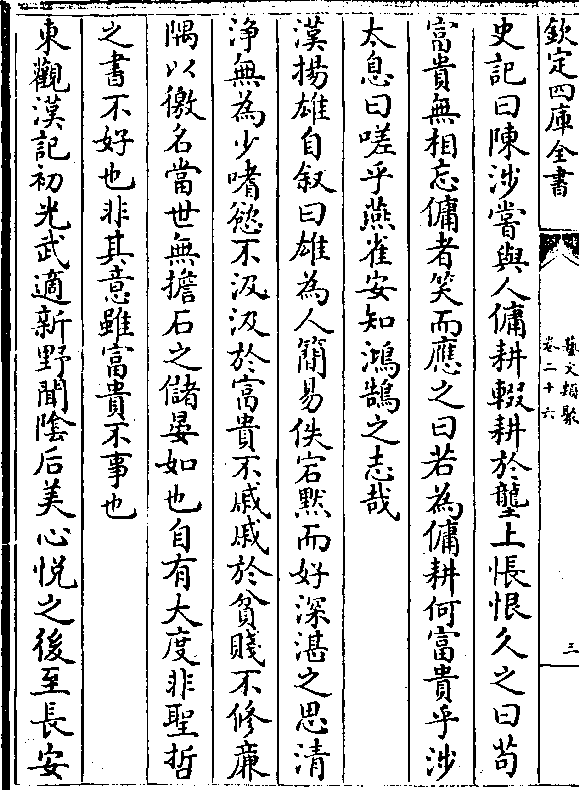 欽定四庫全書
藝文類聚
卷二十六
三
史記曰陳涉嘗與人傭耕輟耕於壟上悵恨久之曰苟
富貴無相忘傭者笑而應之曰若為傭耕何富貴乎涉
太息曰嗟乎燕雀安知鴻鵠之志哉
漢揚雄自叙曰雄為人簡易佚宕黙而好深湛之思清
浄無為少嗜慾不汲汲於富貴不戚戚於貧賤不修廉
隅以徼名當世無擔石之儲晏如也自有大度非聖哲
之書不好也非其意雖富貴不事也
東觀漢記初光武適新野聞隂后美心悦之後至長安